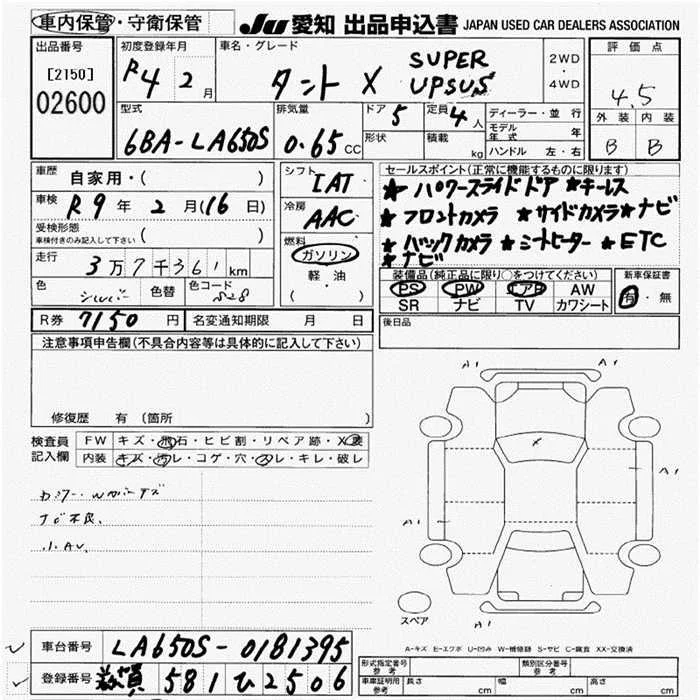 車内保管・守衛保管 JU 愛知 出品申込書 JAPAN USED CAR DEALERS ASSOCIATION
出品番号 [2150] 02600
初度登録年月 R4 2月
車名・グレード タント X SUPER UPSUS
2WD・4WD
評価点 4.5
外装 B 内装 B
型式 6BA-LA650S
排気量 0.65cc
ドア 5 定員 4人
形状 積載 kg
ディーラー・並行
モデル年式 年
ハンドル 左・右
車歴 自家用・( )
車検 R9年2月(16日)
受検形態 車検付きのみ記入して下さい ( )
走行 3万7千361km
色 シルバー 色替 色コード S28
シフト IAT
冷房 AAC
燃料 ガソリン 軽・油 ( )
セールスポイント(正常に機能するものに限ります)
★パワースライドドア ★キーレス
★フロントカメラ ★サイドカメラ★ナビ
★バックカメラ ★シートヒーター ★ETC
★ナビ
装備品(純正品に限り○をつけてください)
PS PW エアB AW
SR ナビ TV カワシート
新車保証書 有・無
R券 7150円 名変通知期限 月 日
後日品
注意事項申告欄(不具合内容等は具体的に記入して下さい)
修復歴 有 (箇所 )
検査員記入欄
FW キズ・飛石・ヒビ割・リペア跡・X
内装 キズ・汚レ・コゲ・穴・スレ・キレ・破レ
ナビ不良、
小AU、
A1 A1
X
A1
A1
スペア
A1
A-キズ E-エクボ U-凹み W-補修跡 S-サビ C-腐食 XX-交換済
車台番号 LA650S-0181395
登録番号 581 ひ 2506
形式指定番号 参考 類別区分番号 参考
車庫証明用 参考 長さ cm 幅 cm 高さ cm